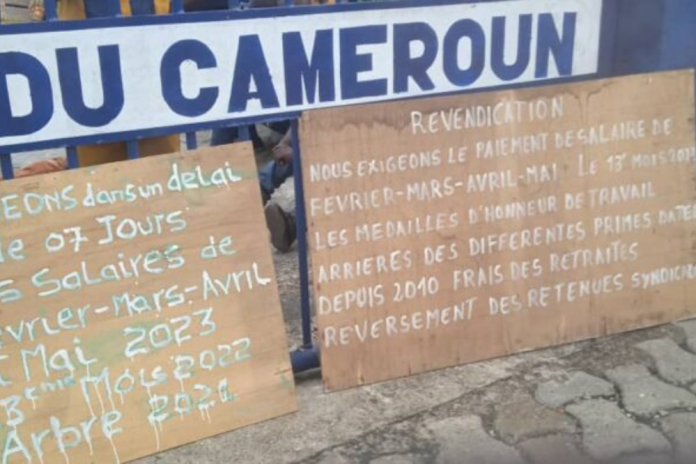 DU CAMEROUN
EONS dans un delai
de 07 Jours
s Salaires de
evrier-Mars-Avril
Mai 2023
3eme Mois 2022
Arbre 2021
REVENDICATION
NOUS EXIGEONS LE PAIEMENT DE SALAIRE DE
FEVRIER-MARS-AVRIL-MAI. LE 13e MOIS
LES MEDAILLES D'HONNEUR DE TRAVAIL
ARRIERES DES DIFFERENTES PRIMES DATE
DEPUIS 2010 FRAIS DES RETRAITES
REVERSEMENT DES RETENUES SYNDICA